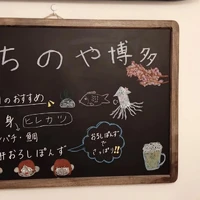 ちのや博多
のおすすめ
身 ヒレカツ
パチ 鯛
おろしぽんず
おろしぽんず
で
さっぱり!!